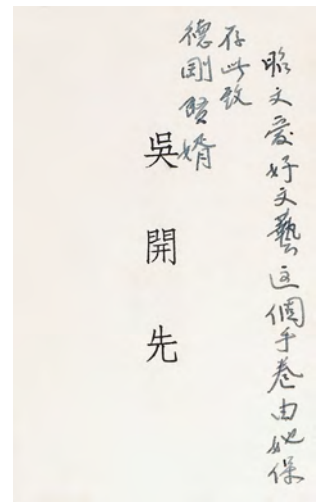 昭文愛好文藝这個手卷由她保
存此致
德剛賢婿
吳開先